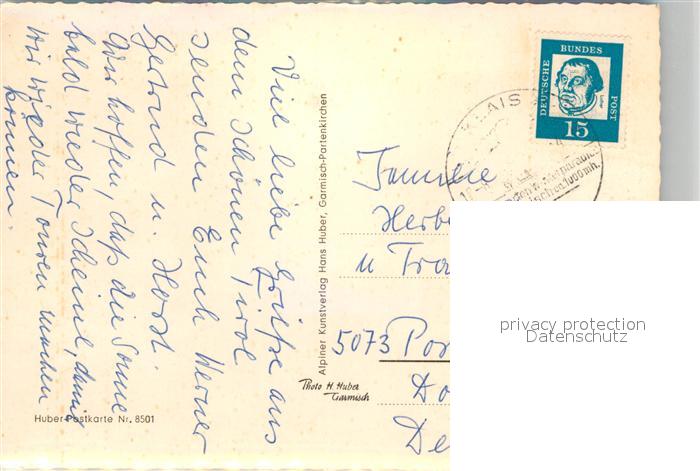 Viele liebe Grüße aus
dem schönen Tirol
senden Euch Werner
Gertrud u. Horst.
Wir hoffen, daß die Sonne
bald wieder scheint, damit
wir wieder Touren machen
können.
Huber-Postkarte Nr. 8501
Alpiner Kunstverlag Hans Huber, Garmisch-Partenkirchen
Photo H. Huber
Garmisch
DEUTSCHE
BUNDES
POST
15
KLAIS
1000 m
Familie
Herbe
u Tra
5073 Por
Do
De
privacy protection
Datenschutz